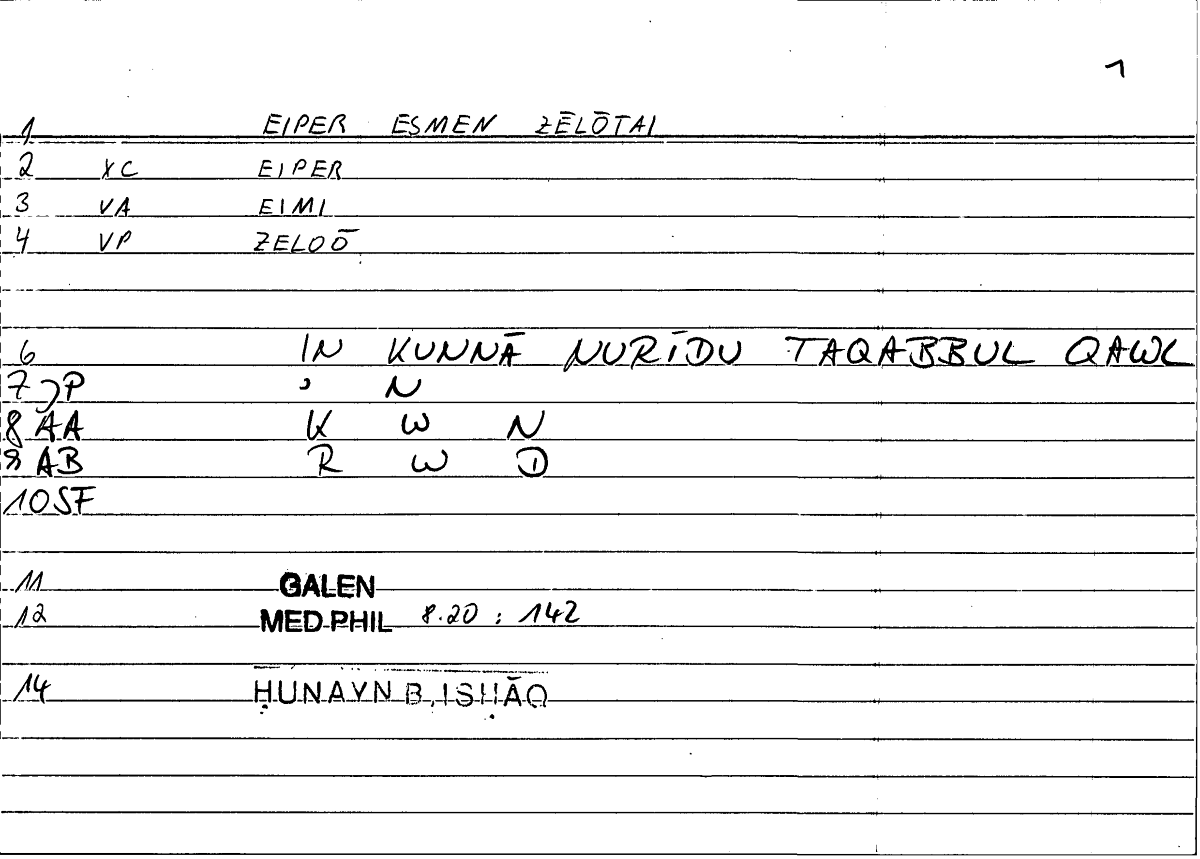 1
1 EIPER ESMEN ZĒLŌTAI
2 XC EIPER
3 VA EIMI
4 VP ZELOŌ
6 IN KUNNĀ NURĪDU TAQABBUL QAWL
7 JP ʾ N
8 AA K W N
9 AB R W D
10 SF
11 GALEN
12 MED.PHIL 8.20 : 142
14 ḤUNAYN B. ISḤĀQ